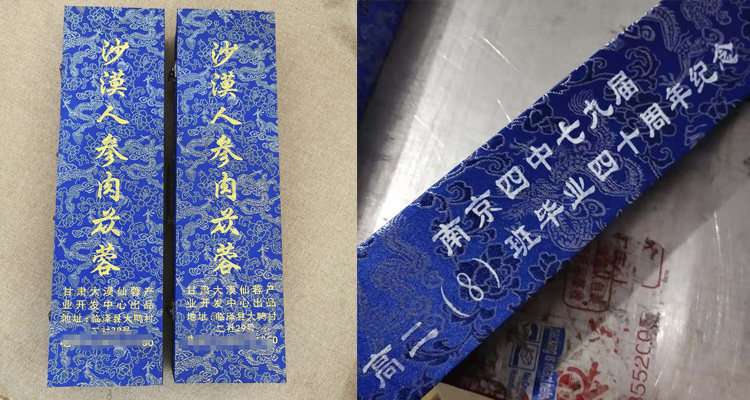 沙漠人参肉苁蓉
甘肃大漠仙蓉产
业开发中心出品
地址:临泽县大鸭村
二社29号
沙漠人参肉苁蓉
甘肃大漠仙蓉产
业开发中心出品
地址:临泽县大鸭村
二社29号
南京四中七九届
高二(8)班毕业四十周年纪念